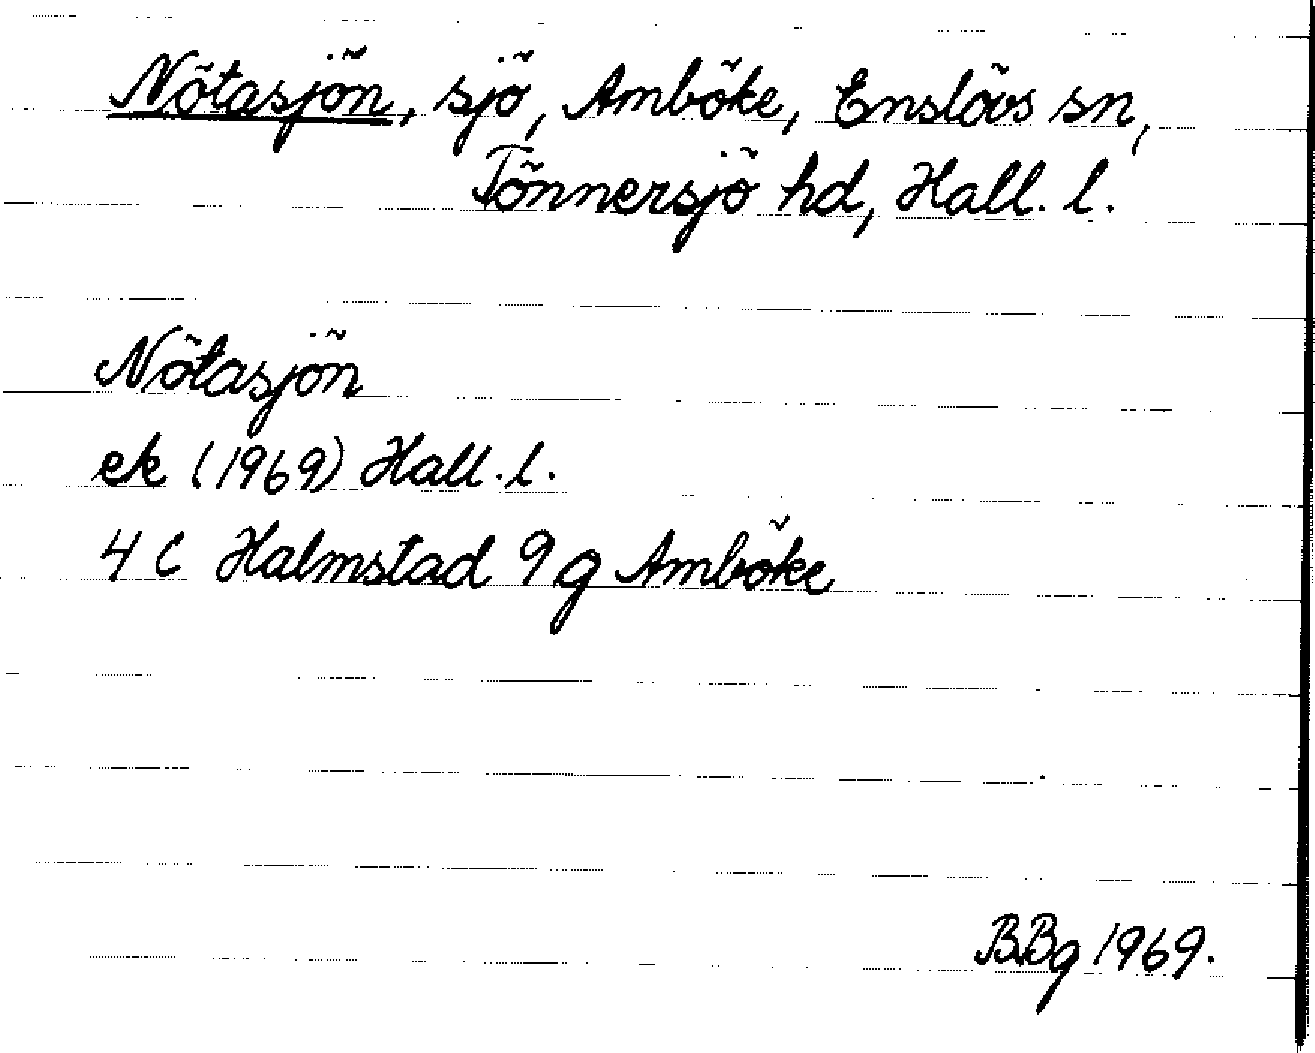 Nötasjön, sjö, Amböke, Enslövs sn,
Tönnersjö hd, Hall. l.
Nötasjön
ek (1969) Hall. l.
4 C Halmstad 9 g Amböke
BBg 1969.